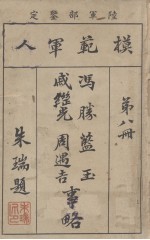 陸軍部鑒定
模範軍人
第八冊
馮勝 藍玉
戚繼光 周遇吉 事略
朱瑞題